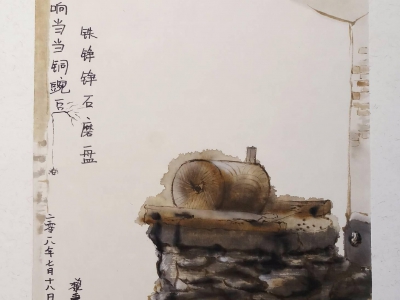 铁铮铮石磨盘
响当当铜豌豆
二零一八年七月十八日